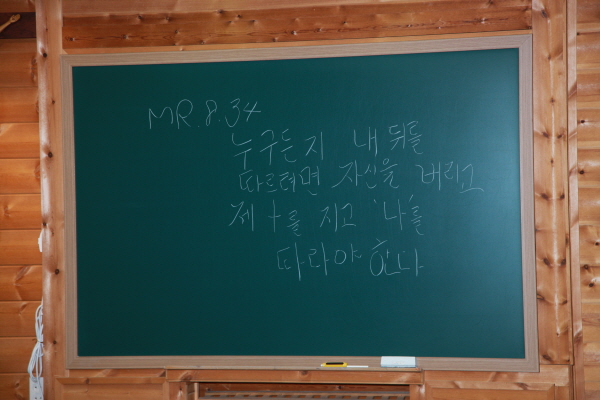 MR.8.34
누구든지 내 뒤를
따르려면 자신을 버리고
제 十를 지고 '나'를
따라야 한다